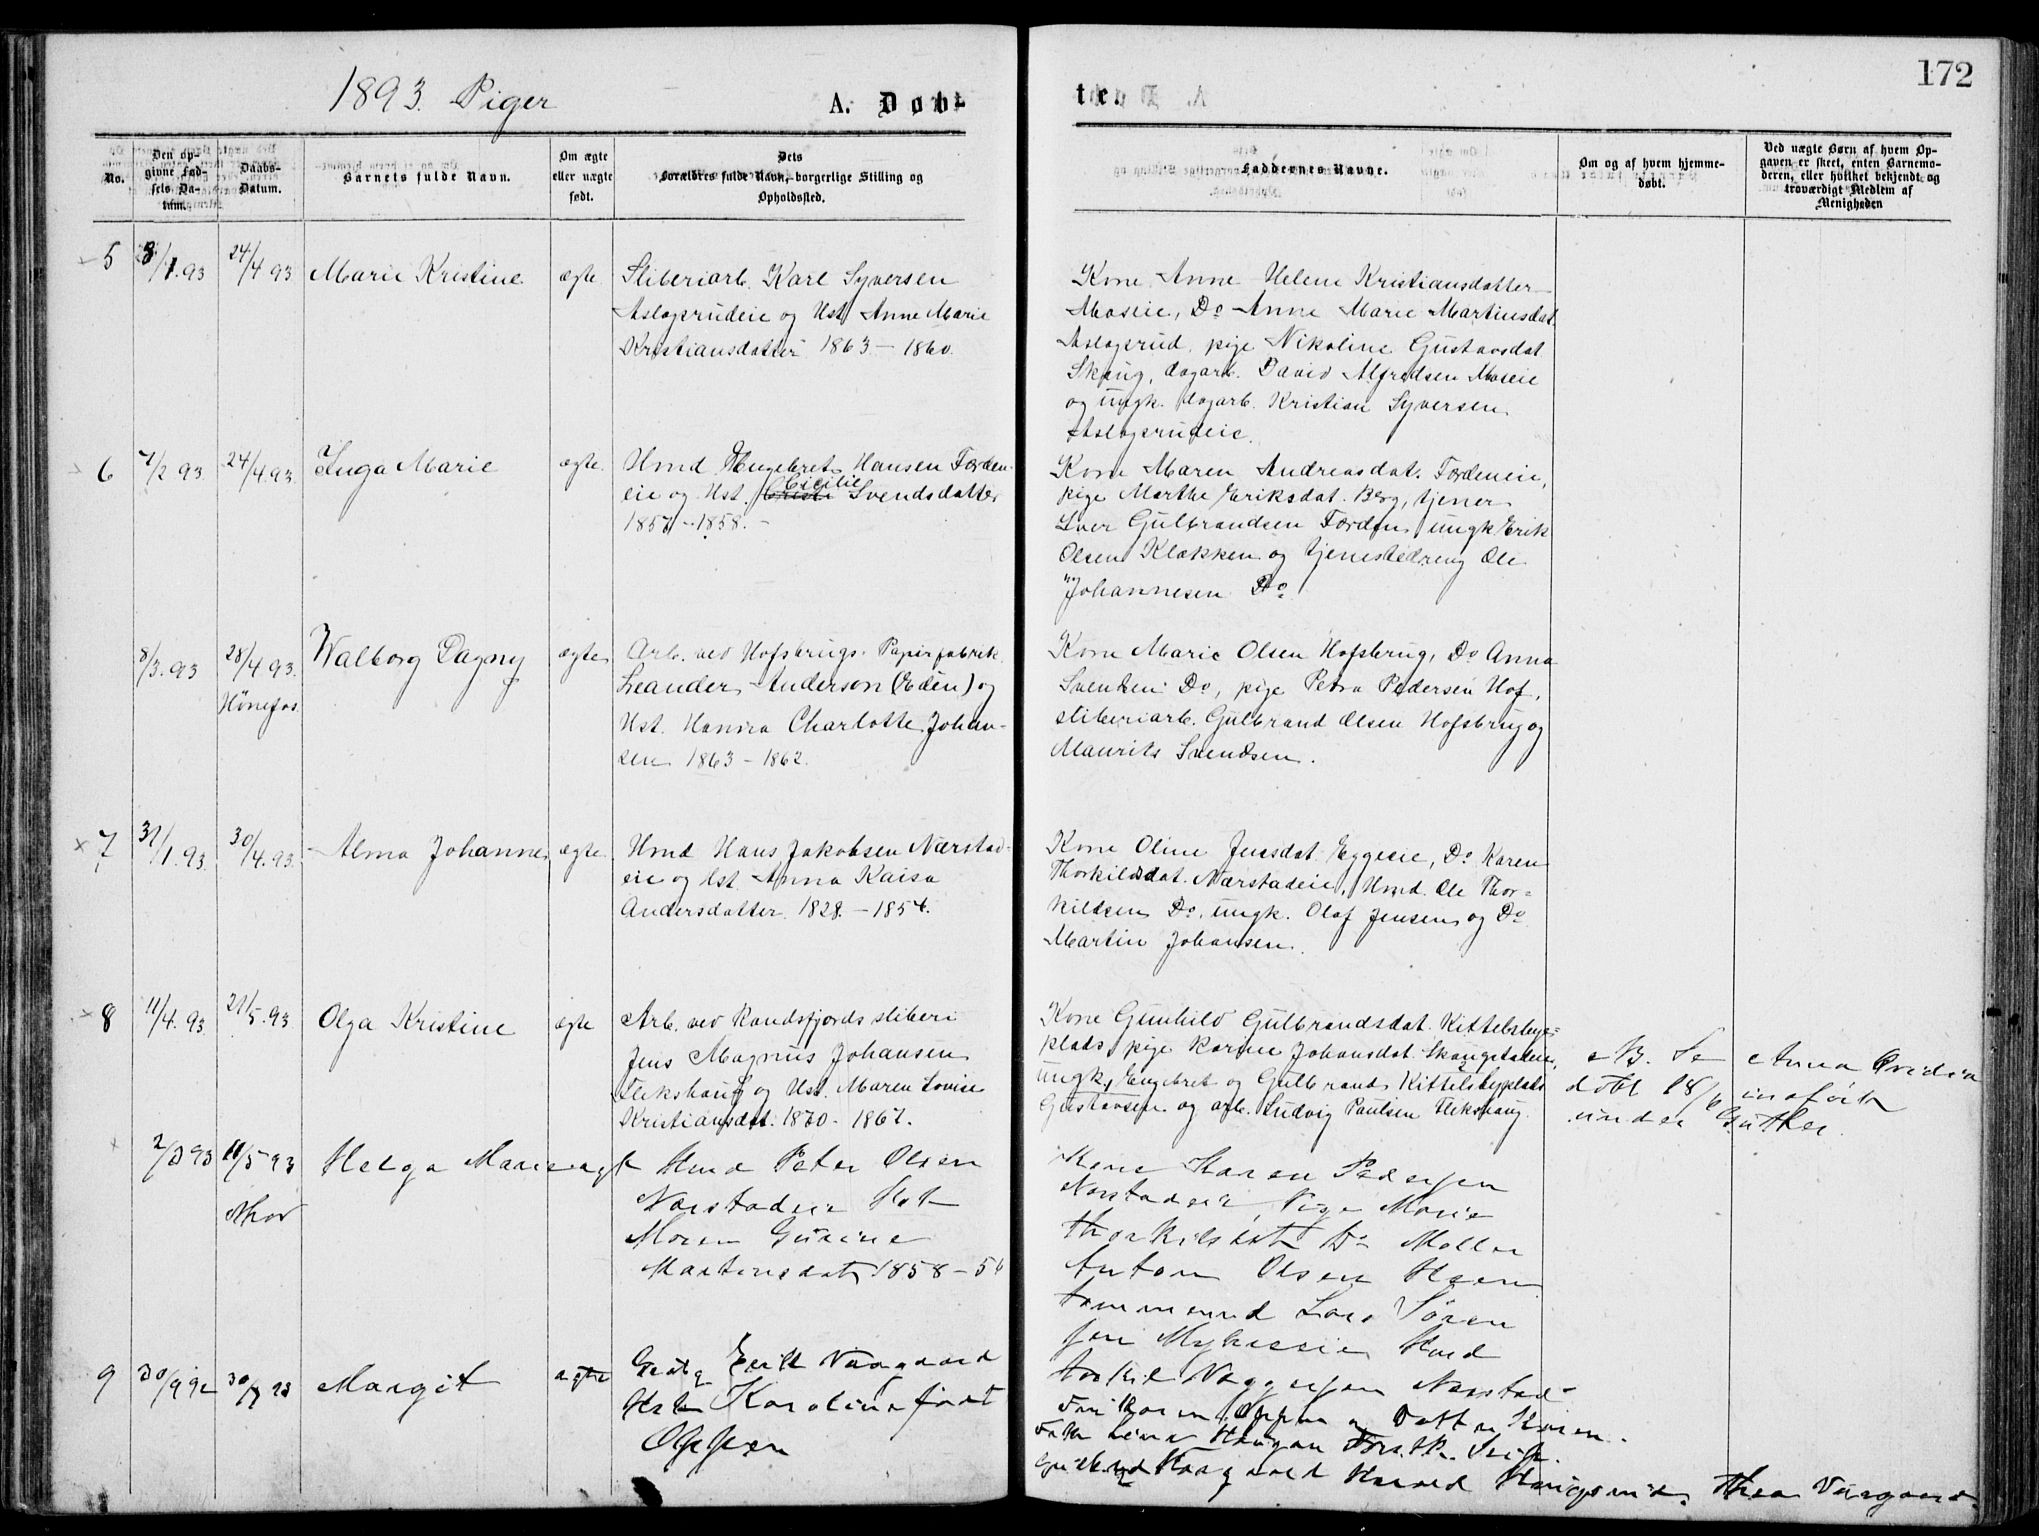 172
1893. Piger
A. Døb-
te.
No.
Den op-
givne Fød-
sels Da-
tum.
Daabs-
Datum.
Barnets fulde Navn.
Om ægte
eller uægte
født.
Dets
Forældres fulde Navn, borgerlige Stilling og
Opholdssted.
Faddernes Navne.
Om og af hvem hjemme-
døbt.
Ved uægte Børn af hvem Op-
gaven er skeet, enten Barnemo-
deren, eller hvilket bekjendt og
troværdigt Medlem af
Menigheden
5 3/1.93 24/4 93 Marie Kristine ægte
Sliberiarb. Karl Syversen
Aslagsrudeie og Hst. Anne Marie
Kristiansdatter 1863 - 1860.
Kone Anne Helene Kristiansdatter
Moseie, Do Anne Marie Martinsdat.
Aslagsrud, pige Nikoline Gustavsdat.
Skaug, dagarb. David Alfredsen Moseie
og ungk. dagarb. Kristian Syversen
Aslagsrudeie.
6 /2 93 24/4.93. Inga Marie ægte
Hmd Engebret Hansen Færden-
eie og Hst. Cicilie Svendsdatter
1857 - 1858. -
Kone Maren Andreasdat. Færdeneie,
pige Marthe Eriksdat. Berg, tjener
Iver Gulbrandsen Færden, ungk Erik
Olsen Klækken og tjenestedreng Ole
Johannesen Do
8/3.93 28/4 93. Walborg Dagny ægte
Hønefos
Arb. ved Hofsbrugs Papirfabrik
Leander Anderson (Edén) og
Hst. Hanna Charlotte Johan-
sen 1863 - 1862.
Kone Marie Olsen Hofsbrug, Do Anna
Svendsen Do, pige Petra Pedersen Hof,
sliberiarb. Gulbrand Olsen Hofsbrug og
Maurits Svendsen.
7 31/1.93. 30/4.93. Alma Johanne ægte
Hmd Hans Jakobsen Nærstad-
eie og Hst. Anna Kaisa
Andersdatter. 1828. - 1854.
Kone Oline Jensdat. Eggeeie, Do Karen
Thorkildsdat. Nærstadeie, Hmd. Ole Thor-
kildsen Do, ungk. Olaf Jensen og Do
Martin Johansen.
8 11/4.93. 21/5.93. Olga Kristine ægte
Arb. ved Randsfjords sliberi
Jens Magnus Johansen
Flekshaug og Hst. Maren Lovise
Kristiansdat. 1870 - 1867.
Kone Gunhild Gulbrandsdat. Kittelsbye-
plads, pige Karine Johansdat.
ungk. Engebret og Gulbrand Kittelsbyplads
Gustavsen og arb. Ludvig Paulsen Flekshaug.
NB. Se Anna
døbt 18/6 indført
under Gutter.
2/3 93 11/5 93 Helga Marie ægt
Hmd Peter Olsen
Nærstadeie Hst
Maren Gurine
Martinsdat 1858 - 56
Kone Karen Pedersen
Nærstadeie, Pige Marie
Thorkildsdt Do Møller
Anton Olsen Hoen
Tømmermd Lars Søren
sen Hmd
Nærstad-
9 30/9 92 30/ 93 Margit ægte
Erik Vaagaard
Karoline født
Oppen
Karen Oppen
Haugen
Thea Vaagaard.